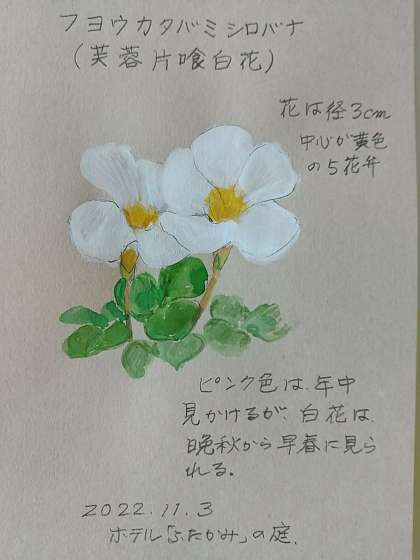 フヨウカタバミシロバナ
(芙蓉片喰白花)
花は径3cm
中心が黄色
の5花弁
ピンク色は、年中
見かけるが、白花は、
晩秋から早春に見ら
れる。
2022.11.3
ホテル「ふたかみ」の庭.